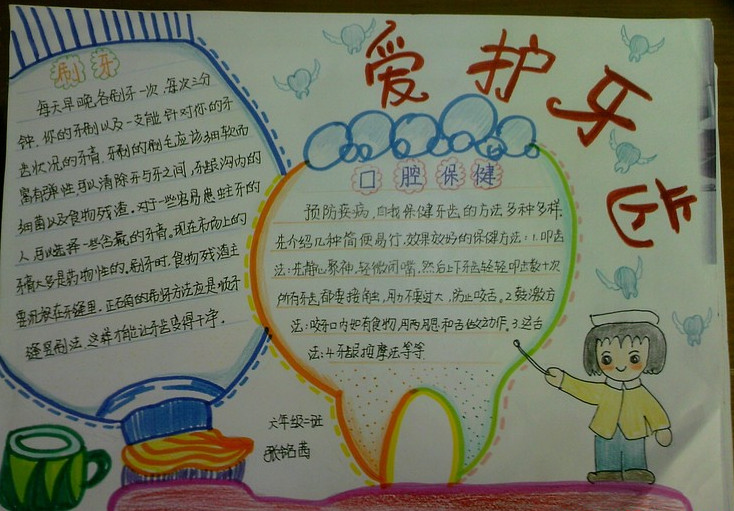 爱护牙齿
刷牙
每天早晚各刷牙一次,每次三分
钟。你的牙刷以及一支能针对你的牙
齿状况的牙膏。牙刷的刷毛应该细软而
富有弹性,可以清除牙与牙之间,牙龈沟内的
细菌以及食物残渣。对于一些容易患蛀牙的
人可以选择一些含氟的牙膏。现在市场上的
牙膏大多是药物性的。刷牙时,食物残渣主
要积放在牙缝里。正确的刷牙方法应是顺牙
缝竖刷法,这样才能让牙齿变得干净。
口腔保健
预防疾病,自我保健牙齿的方法多种多样.
先介绍几种简便易行,效果较好的保健方法:1.叩齿
法:先静心聚神,轻微闭嘴,然后上下牙齿轻轻叩击数十次
所有牙齿都要接触,用力不要过大,防止咬舌。2.鼓漱方
法:咬牙口内如有食物,用两腮和舌做动作。3.运舌
法:4.牙龈按摩法等等
六年级二班
张铭茜